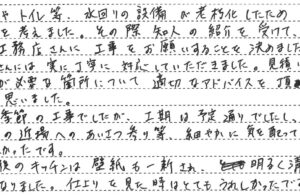 トイレ等、水回りの設備が老朽化したため
を考えました。その際 知人の紹介を受けて、
務店さんに 工事をお願いすることを決めました
さんには 実に丁寧に対応していただきました。見積り
が必要な箇所について 適切なアドバイスを頂
思いました。
季節の工事でしたが、工期は予定通りでしたし、
の近隣へのあいさつ参り等 細やかに気を配って
かったです。
後のキッチンは 壁紙も一新され、明るく清
なりました。仕上りを見た時はとてもうれしかったで